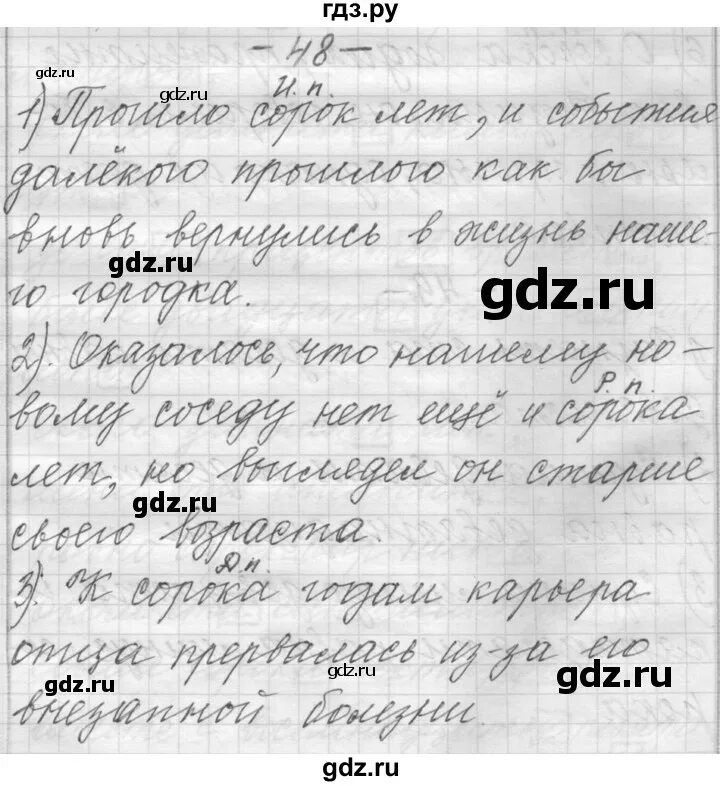 гдз.ру
- 48 -
gdz.ru gdz.ru И. п.
1) Прошло сорок лет, и события
далёкого прошлого как бы
вновь вернулись в жизнь наше-
gdz.ru gdz.ru
го городка.
2). Оказалось, что нашему но-
Р. п.
вому соседу нет ещё и сорока
лет, но выглядел он старше
gdz.ru
своего возраста.
Д п.
3). К сорока годам карьера
отца прервалась из-за его
gdz.ru gdz.ru
внезапной болезни.
gdz.ru